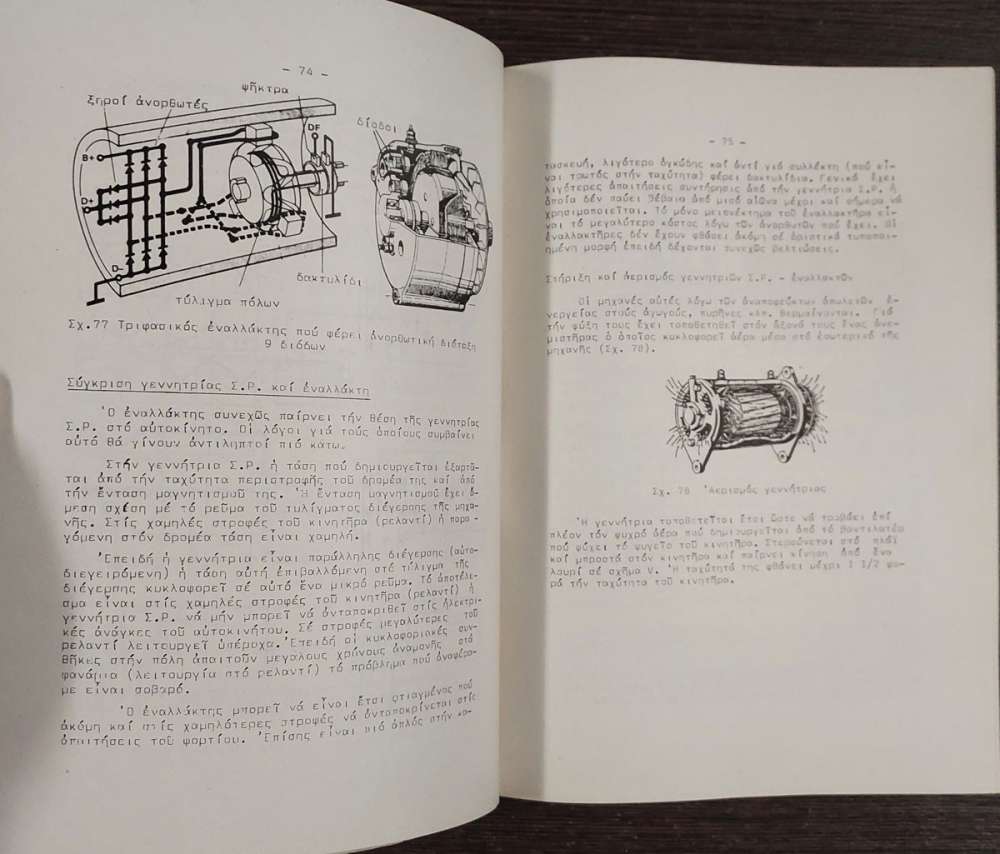 - 74 -
ψῆκτρα
ξηροί ἀνορθωτές
δίοδοι
DF
B+
D+
D-
δακτυλίδι
τύλιγμα πόλων
Σχ.77 Τριφασικός ἐναλλάκτης πού φέρει ἀνορθωτική διάταξη
9 διόδων
Σύγκριση γεννητρίας Σ.Ρ. καί ἐναλλάκτη
Ὁ ἐναλλάκτης συνεχῶς παίρνει τήν θέση τῆς γεννητρίας
Σ.Ρ. στό αὐτοκίνητο. Οἱ λόγοι γιά τούς ὁποίους συμβαίνει
αὐτό θά γίνουν ἀντιληπτοί πιό κάτω.
Στήν γεννήτρια Σ.Ρ. ἡ τάση πού δημιουργεῖται ἐξαρτᾶ-
ται ἀπό τήν ταχύτητα περιστροφῆς τοῦ δρομέα της καί ἀπό
τήν ἔνταση μαγνητισμοῦ της. Ἡ ἔνταση μαγνητισμοῦ ἔχει ἄ-
μεση σχέση μέ τό ρεῦμα τοῦ τυλίγματος διέγερσης τῆς μηχα-
νῆς. Στίς χαμηλές στροφές τοῦ κινητῆρα (ρελαντί) ἡ παρα-
γόμενη στόν δρομέα τάση εἶναι χαμηλή.
Ἐπειδή ἡ γεννήτρια εἶναι παράλληλης διέγερσης (αὐτο-
διεγειρόμενη) ἡ τάση αὐτή ἐπιβαλλόμενη στό τύλιγμα τῆς
διέγερσης κυκλοφορεῖ σέ αὐτό ἕνα μικρό ρεῦμα. Τό ἀποτέλε-
σμα εἶναι στίς χαμηλές στροφές τοῦ κινητῆρα (ρελαντί) ἡ
γεννήτρια Σ.Ρ. νά μήν μπορεῖ νά ἀνταποκριθεῖ στίς ἠλεκτρι-
κές ἀνάγκες τοῦ αὐτοκινήτου. Σέ στροφές μεγαλύτερες τοῦ
ρελαντί λειτουργεῖ ὑπέροχα. Ἐπειδή οἱ κυκλοφοριακές συν-
θῆκες στήν πόλη ἀπαιτοῦν μεγάλους χρόνους ἀναμονῆς στά
φανάρια (λειτουργία στό ρελαντί) τό πρόβλημα πού ἀναφέρα-
με εἶναι σοβαρό.
Ὁ ἐναλλάκτης μπορεῖ νά εἶναι ἔτσι φτιαγμένος πού
ἀκόμη καί στίς χαμηλότερες στροφές νά ἀνταποκρίνεται στίς
ἀπαιτήσεις τοῦ φορτίου. Ἐπίσης εἶναι πιό ἁπλός στήν κα-
- 75 -
τασκευή, λιγότερο ὀγκώδης καί ἀντί γιά συλλέκτη (πού εἶ-
ναι τρωτός στήν ταχύτητα) φέρει δακτυλίδια. Γενικά ἔχει
λιγότερες ἀπαιτήσεις συντήρησης ἀπό τήν γεννήτρια Σ.Ρ. ἡ
ὁποία δέν παύει βέβαια ἀπό μισό αἰῶνα μέχρι καί σήμερα νά
χρησιμοποιεῖται. Τό μόνο μειονέκτημα τοῦ ἐναλλακτῆρα εἶ-
ναι τό μεγαλύτερο κόστος λόγω τῶν ἀνορθωτῶν πού ἔχει. Οἱ
ἐναλλακτῆρες δέν ἔχουν φθάσει ἀκόμη σέ ὁριστικά τυποποι-
ημένη μορφή ἐπειδή δέχονται συνεχῶς βελτιώσεις.
Στήριξη καί ἀερισμός γεννητριῶν Σ.Ρ. - ἐναλλακτῶν
Οἱ μηχανές αὐτές λόγω τῶν ἀναποφεύκτων ἀπωλειῶν ἐ-
νεργείας στούς ἀγωγούς, πυρῆνες κλπ. θερμαίνονται. Γιά
τήν ψύξη τους ἔχει τοποθετηθεῖ στόν ἄξονά τους ἕνας ἀνε-
μιστήρας ὁ ὁποῖος κυκλοφορεῖ ἀέρα μέσα στό ἐσωτερικό τῆς
μηχανῆς (Σχ. 78).
Σχ. 78 Ἀερισμός γεννήτριας
Ἡ γεννήτρια τοποθετεῖται ἔτσι ὥστε νά τραβάει ἐπί
πλέον τόν ψυχρό ἀέρα πού δημιουργεῖται ἀπό τό βαντιλατέρ
πού ψύχει τό ψυγεῖο τοῦ κινητῆρα. Στερεώνεται στό πλάϊ
καί μπροστά στόν κινητῆρα καί παίρνει κίνηση ἀπό ἕνα
λουρί σέ σχῆμα V. Ἡ ταχύτητά της φθάνει μέχρι 1 1/2 φο-
ρά τήν ταχύτητα τοῦ κινητῆρα.